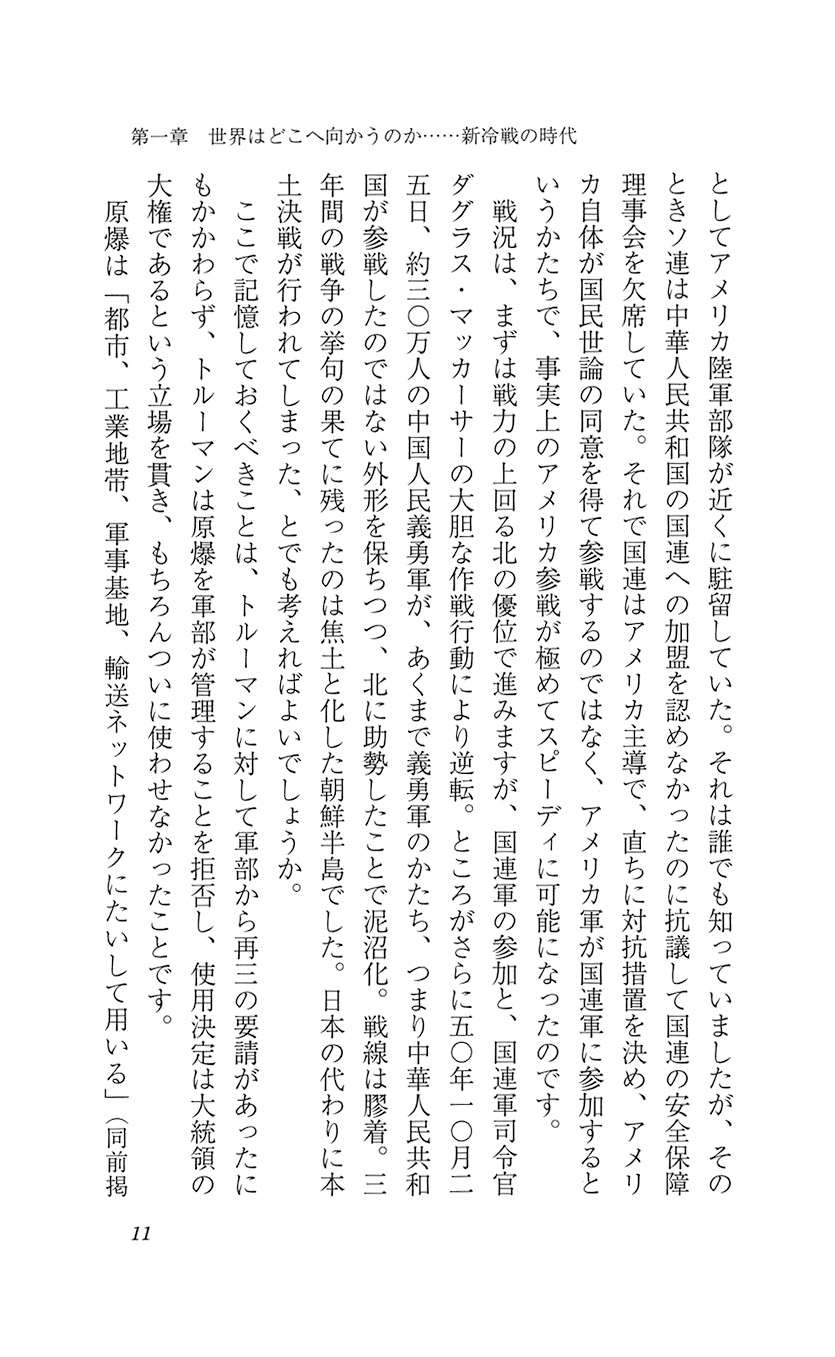 第一章　世界はどこへ向かうのか……新冷戦の時代
としてアメリカ陸軍部隊が近くに駐留していた。それは誰でも知っていましたが、その
ときソ連は中華人民共和国の国連への加盟を認めなかったのに抗議して国連の安全保障
理事会を欠席していた。それで国連はアメリカ主導で、直ちに対抗措置を決め、アメリ
カ自体が国民世論の同意を得て参戦するのではなく、アメリカ軍が国連軍に参加すると
いうかたちで、事実上のアメリカ参戦が極めてスピーディに可能になったのです。
　戦況は、まずは戦力の上回る北の優位で進みますが、国連軍の参加と、国連軍司令官
ダグラス・マッカーサーの大胆な作戦行動により逆転。ところがさらに五〇年一〇月二
五日、約三〇万人の中国人民義勇軍が、あくまで義勇軍のかたち、つまり中華人民共和
国が参戦したのではない外形を保ちつつ、北に助勢したことで泥沼化。戦線は膠着。三
年間の戦争の挙句の果てに残ったのは焦土と化した朝鮮半島でした。日本の代わりに本
土決戦が行われてしまった、とでも考えればよいでしょうか。
　ここで記憶しておくべきことは、トルーマンに対して軍部から再三の要請があったに
もかかわらず、トルーマンは原爆を軍部が管理することを拒否し、使用決定は大統領の
大権であるという立場を貫き、もちろんついに使わせなかったことです。
　原爆は「都市、工業地帯、軍事基地、輸送ネットワークにたいして用いる」（同前掲
11